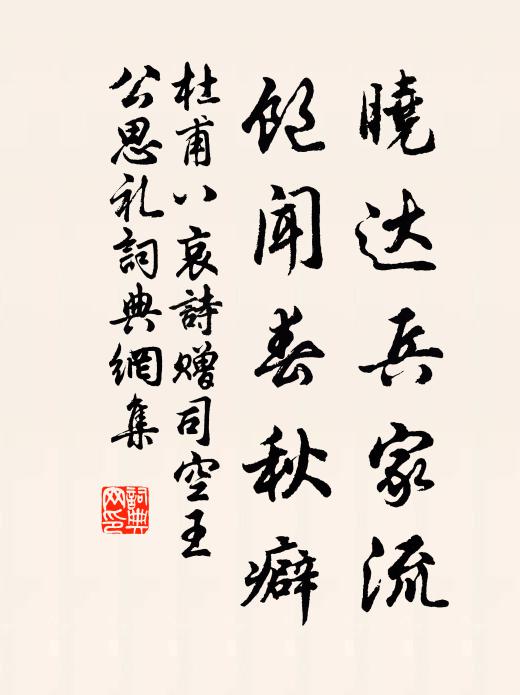 曉达兵家流
飽闻春秋癖
杜甫八哀詩赠司空王
公思礼詞典網集
詞典网印